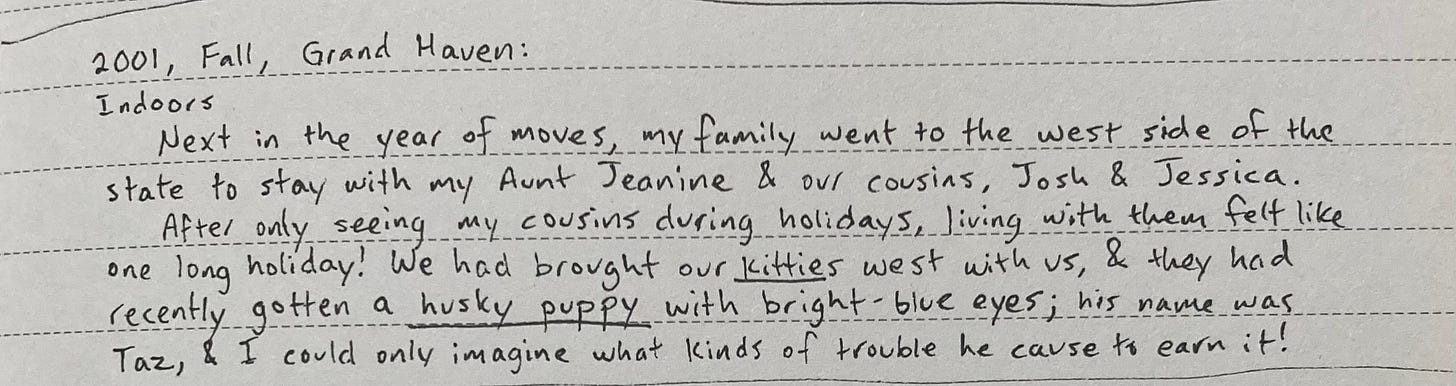 2001, Fall, Grand Haven:
Indoors
Next in the year of moves, my family went to the west side of the
state to stay with my Aunt Jeanine & our cousins, Josh & Jessica.
After only seeing my cousins during holidays, living with them felt like
one long holiday! We had brought our kitties west with us, & they had
recently gotten a husky puppy with bright-blue eyes; his name was
Taz, & I could only imagine what kinds of trouble he cause to earn it!